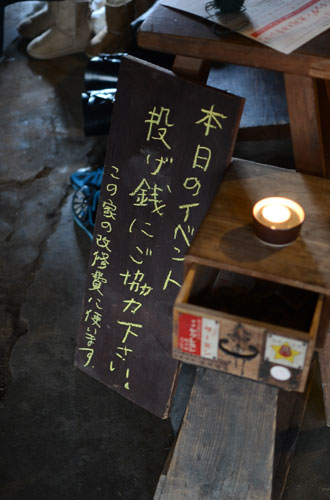 本日のイベント
投げ銭にご協力下さい。
この家の改修費に使います。